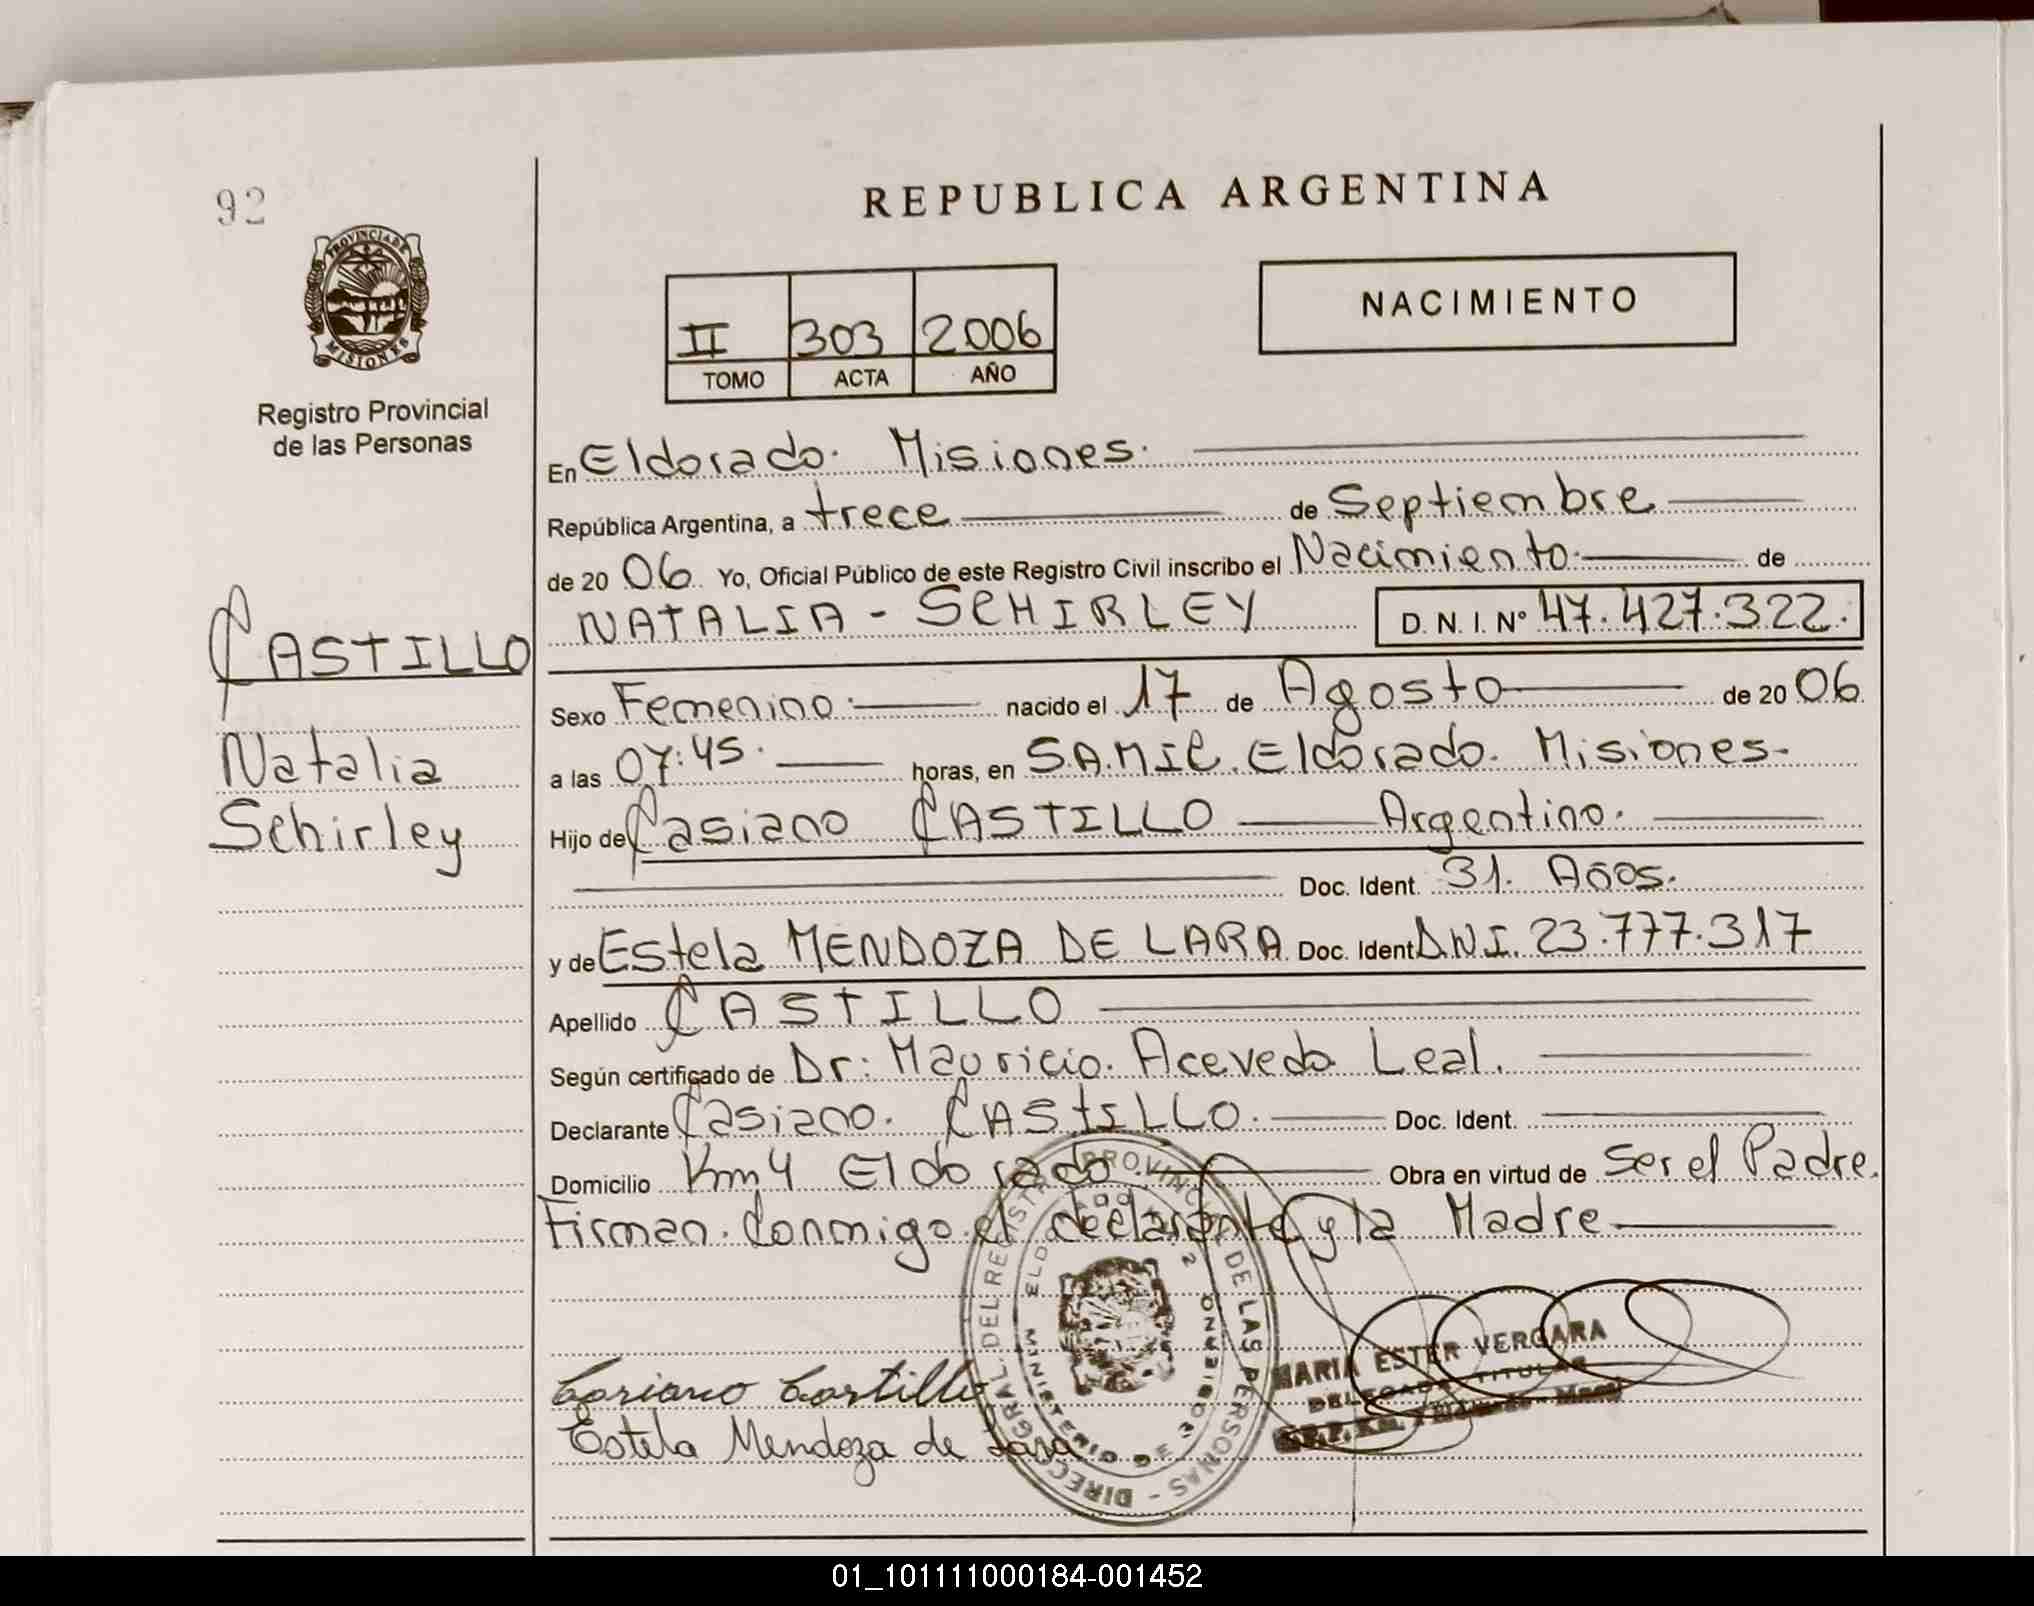 92
REPUBLICA ARGENTINA
PROVINCIA DE MISIONES
Registro Provincial
de las Personas
II 303 2006
TOMO ACTA AÑO
NACIMIENTO
En Eldorado. Misiones.
República Argentina, a trece de Septiembre
de 20 06 Yo, Oficial Público de este Registro Civil inscribo el Nacimiento de
NATALIA - SCHIRLEY D.N.I. Nº 47.427.322.
CASTILLO
Natalia
Schirley
Sexo Femenino nacido el 17 de Agosto de 20 06
a las 07:45. horas, en S.A.MIC. Eldorado. Misiones-
Hijo de Casiano CASTILLO Argentino.
Doc. Ident. 31. Años.
y de Estela MENDOZA DE LARA Doc. Ident. DNI. 23.777.317
Apellido CASTILLO
Según certificado de Dr: Mauricio. Acevedo Leal.
Declarante Casiano. CASTILLO. Doc. Ident.
Domicilio Km 4 Eldorado. Obra en virtud de Ser el Padre.
Firman. Conmigo el declarante y la Madre
DIREC. GRAL. DEL REGISTRO PROVINCIAL DE LAS PERSONAS -
MINISTERIO DE GOBIERNO
MARIA ESTER VERGARA
DELEGADA TITULAR
Casiano Castillo
Estela Mendoza de Lara
01_101111000184-001452